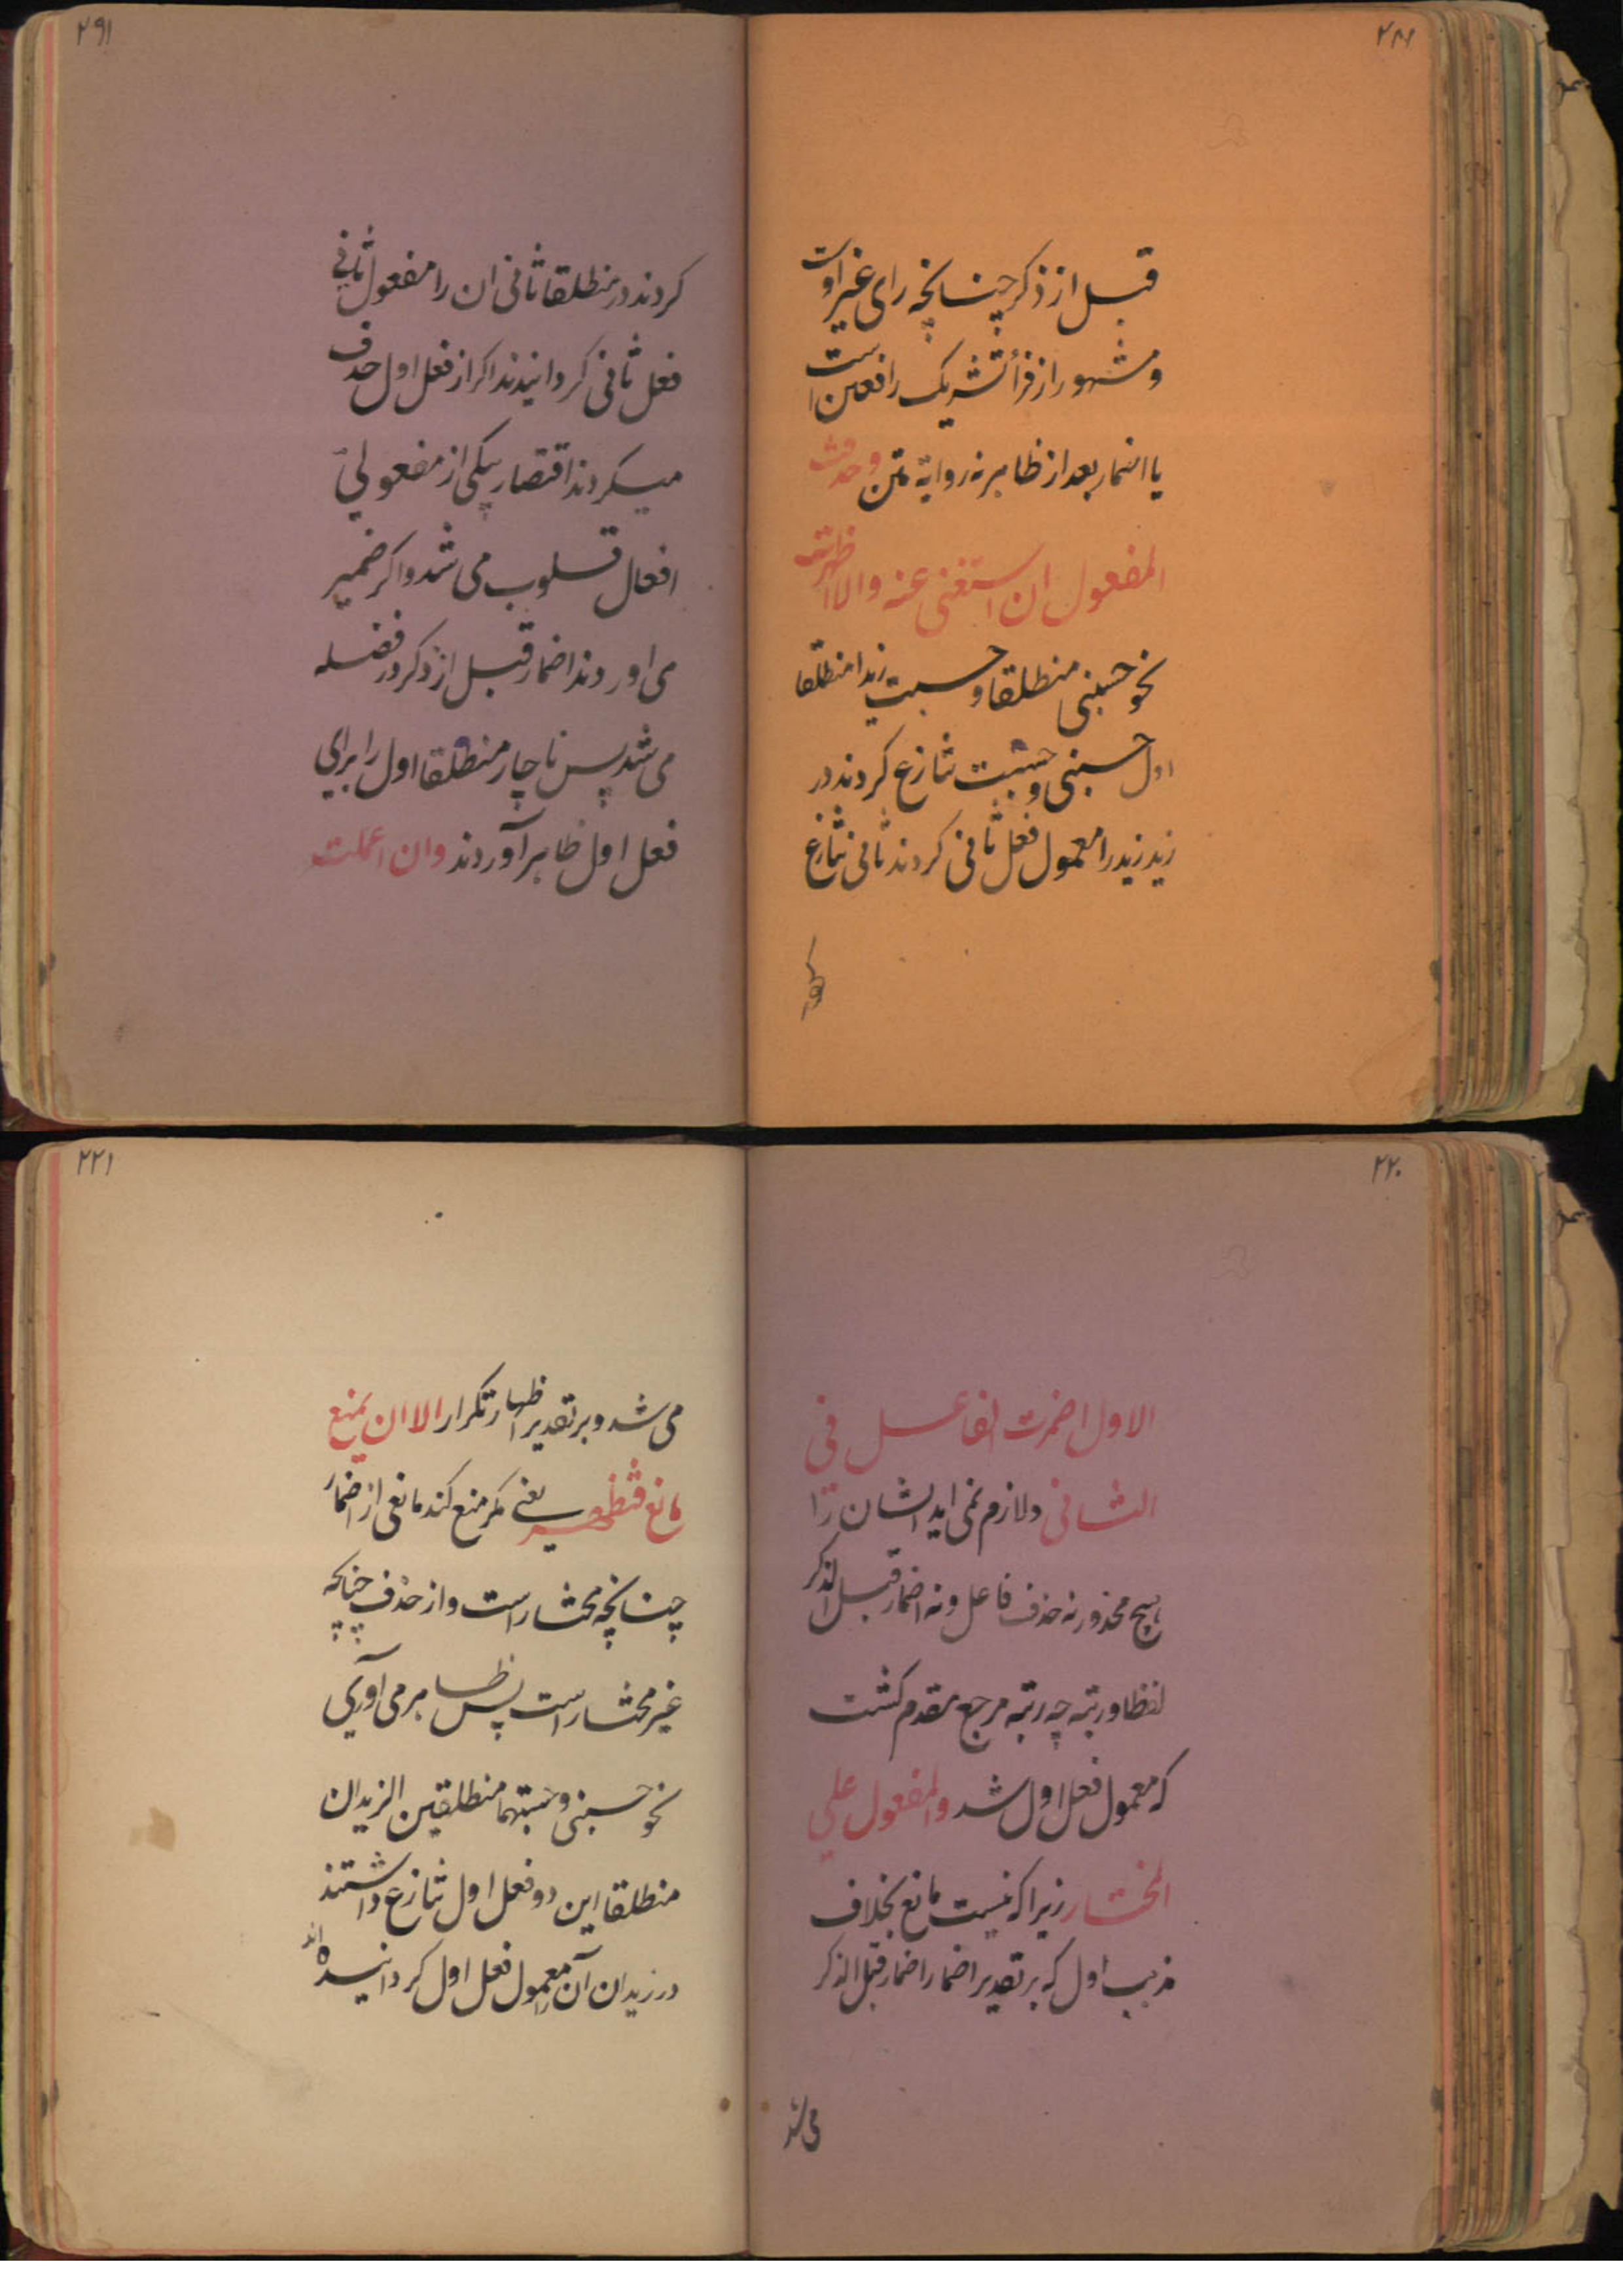 ۲۱۸
قبل از ذکر چنانچه رای غیر اوست
و مشهور از فرأ تشریک رافعین است
یا اضمار بعد از ظاهر نه روایة متن و حذفت
المفعول ان استغنی عنه والا اظهرت
نحو حسبنی منطلقا و حسبت زیدا منطلقا
اول حسبنی و حسبت تنازع کردند در
زید زید را معمول فعل ثانی کردند ثانی تنازع
۲۹۱
کردند در منطلقا ثانی ان را مفعول ثانی
فعل ثانی کردانیدند اکر از فعل اول حذف
میکردند اقتصار بیکی از مفعولی
افعال قلوب می شد و اکر ضمیر
می اوردند اضمار قبل از ذکر در فضله
می شد پس ناچار منطلقا اول را برای
فعل اول ظاهر آوردند وان اعملت
۲۲۰
الاول اضمرت الفاعل فی
الثانی و لازم نمی اید ایشان را
هیچ محذور نه حذف فاعل و نه اضمار قبل الذکر
لفظا و رتبة چه رتبه مرجع مقدم کشت
که معمول فعل اول شد والمفعول علی
المختار زیرا که نیست مانع بخلاف
مذهب اول که بر تقدیر اضمار اضمار قبل الذکر
می شد
۲۲۱
می شد و بر تقدیر اظهار تکرار الا ان یمنع
مانع فتظهر یعنی مکر منع کند مانعی از اضمار
چنانچه مختار است و از حذف چنانچه
غیر مختار است پس ظاهر می آوری
نحو حسبنی و حسبتهما منطلقین الزیدان
منطلقا این دو فعل اول تنازع داشتند
در زیدان آن را معمول فعل اول کردانیده اند